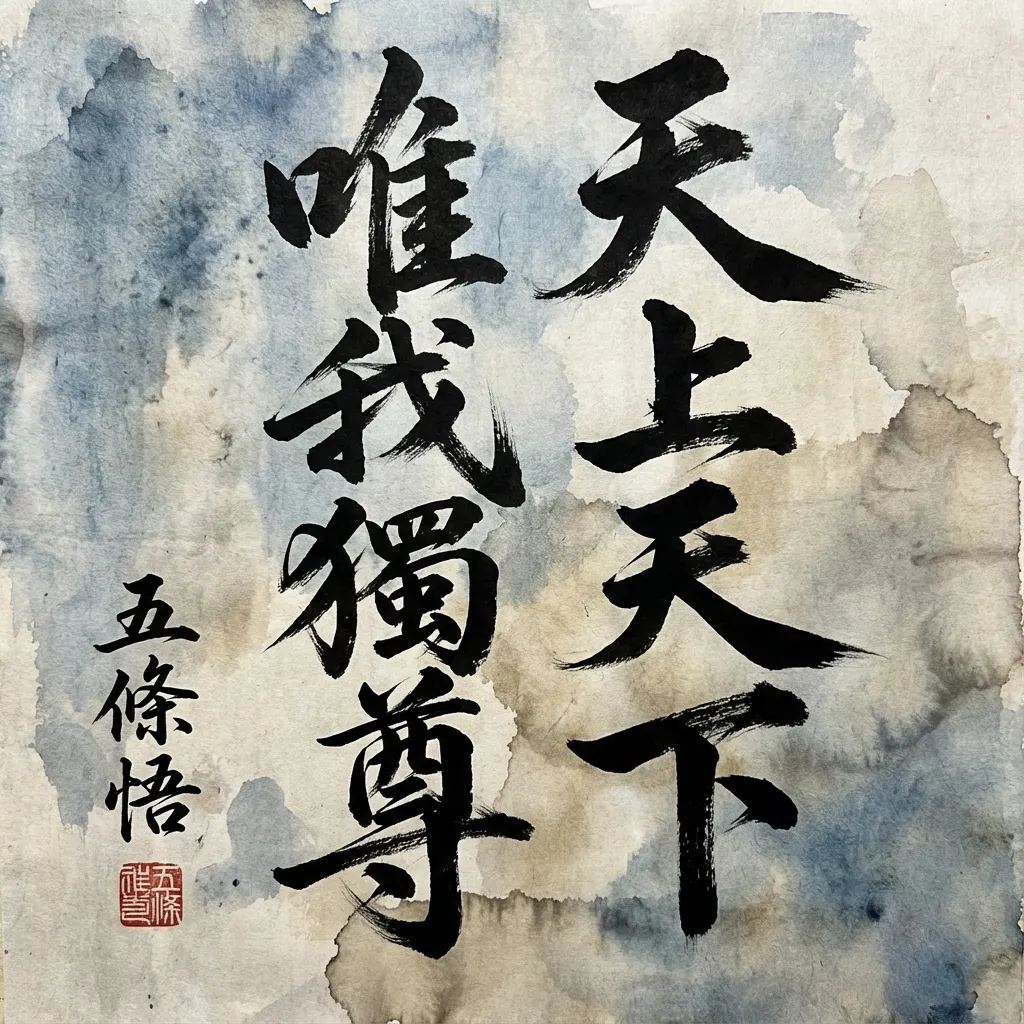 天上天下
唯我獨尊
五條悟
五條